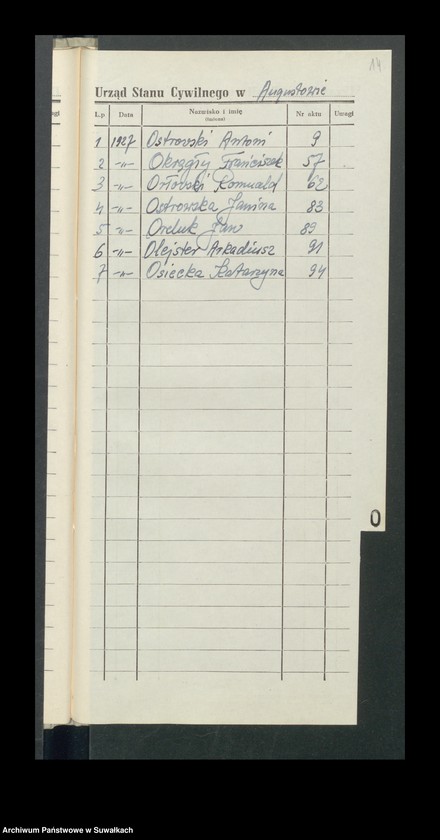 14
Urząd Stanu Cywilnego w Augustowie
L.p Data Nazwisko i imię (imiona) Nr aktu Uwagi
1 1927 Ostrowski Antoni 9
2 -„- Okrągły Franciszek 57
3 -„- Orłowski Romuald 62
4 -„- Ostrowska Janina 83
5 -„- Oreluk Jan 89
6 -„- Olejster Arkadiusz 91
7 -„- Osiecka Katarzyna 94
O
Archiwum Państwowe w Suwałkach